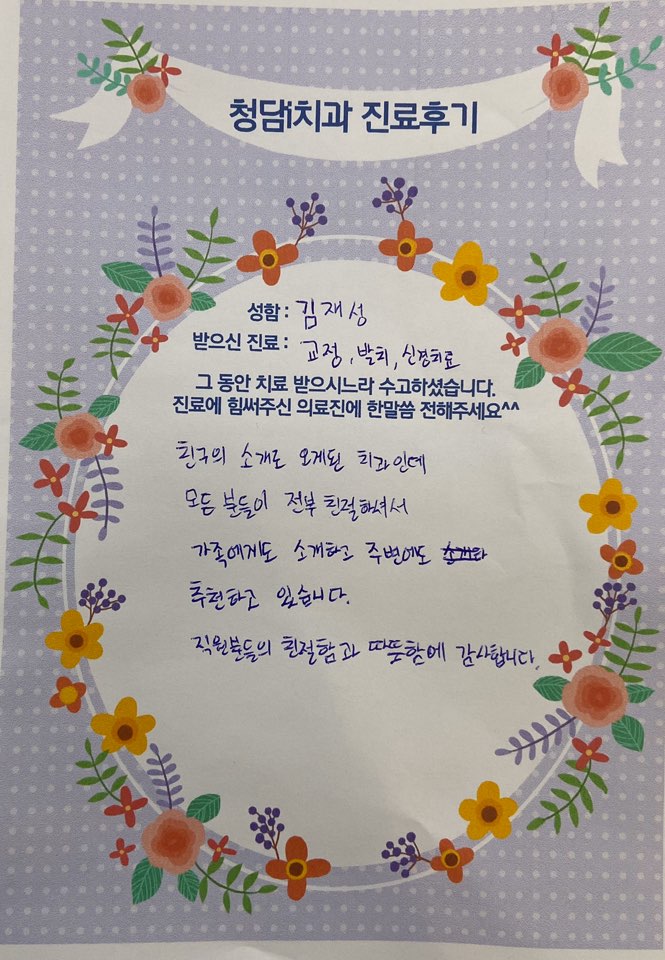 청담i치과 진료후기
성함 : 김재성
받으신 진료 : 교정, 발치, 신경치료
그 동안 치료 받으시느라 수고하셨습니다.
진료에 힘써주신 의료진에 한말씀 전해주세요^^
친구의 소개로 오게된 치과인데
모든 분들이 전부 친절하셔서
가족에게도 소개하고 주변에도
추천하고 있습니다.
직원분들의 친절함과 따뜻함에 감사합니다.